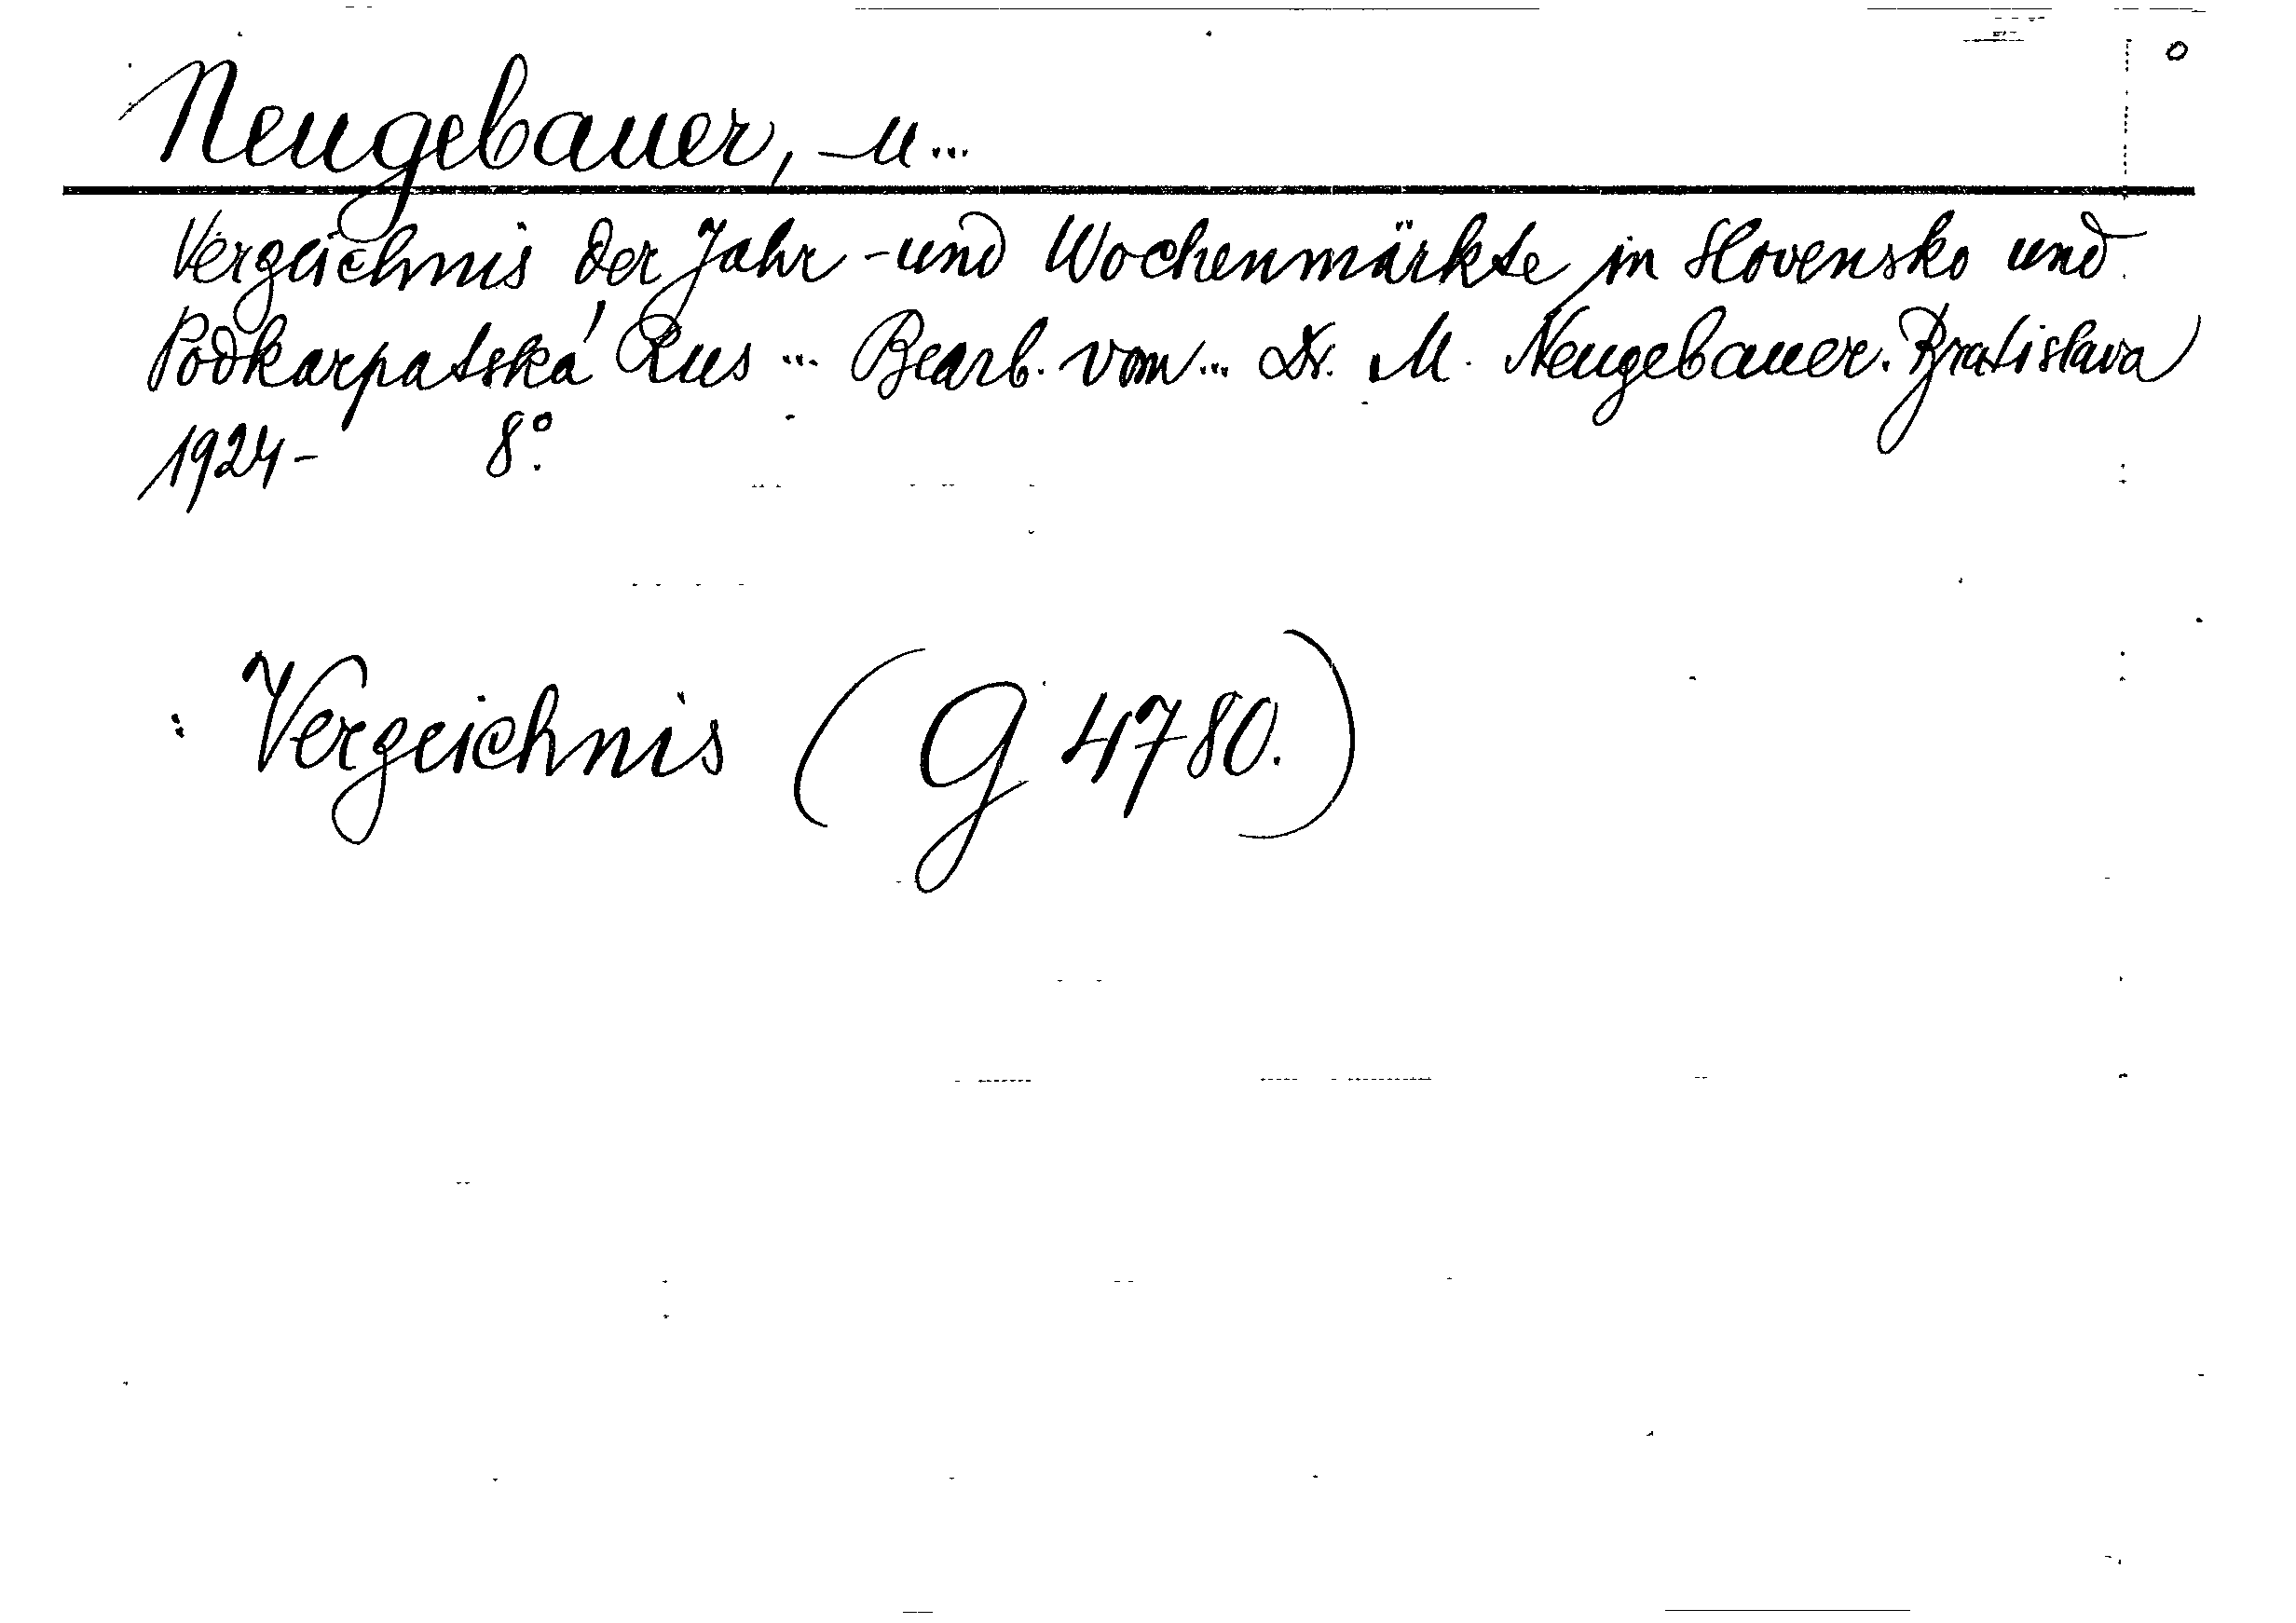 Neugebauer, M...
Verzeichnis der Jahr- und Wochenmärkte in Slovensko und
Podkarpatská Rus ... Bearb. vom... Dr. M. Neugebauer. Bratislava
1924- 8°.
: Verzeichnis (G 4780.)